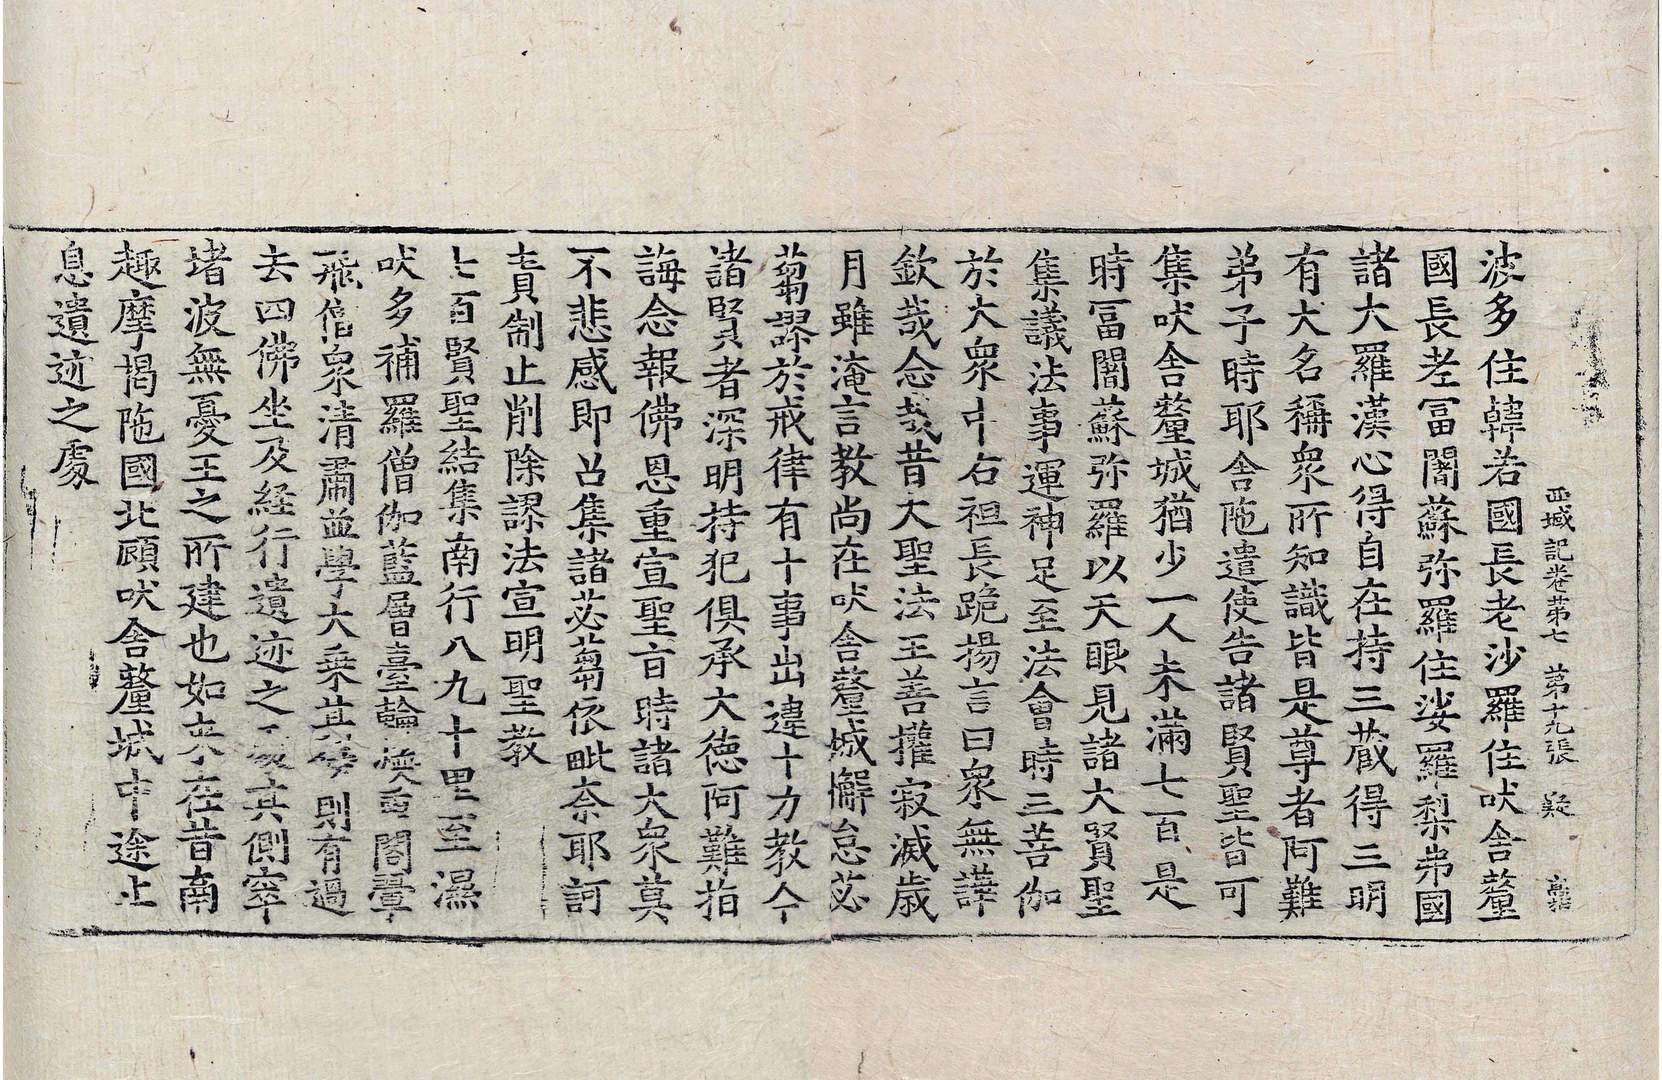 西域記卷第七　第十九張　疑
波多住韓若國長老沙羅住吠舍釐
國長老冨闍蘇弥羅住娑羅梨弗國
諸大羅漢心得自在持三藏得三明
有大名稱衆所知識皆是尊者阿難
弟子時耶舍陁遣使告諸賢聖皆可
集吠舍釐城猶少一人未滿七百是
時冨闍蘇弥羅以天眼見諸大賢聖
集議法事運神足至法會時三菩伽
於大衆中右袒長跪揚言曰衆無譁
欽哉念哉昔大聖法王善權寂滅歲
月雖淹言教尚在吠舍釐城懈怠苾
蒭謬於戒律有十事出違十力教今
諸賢者深明持犯俱承大德阿難指
誨念報佛恩重宣聖旨時諸大衆莫
不悲感即召集諸苾蒭依毗奈耶訶
責制止削除謬法宣明聖教
七百賢聖結集南行八九十里至濕
吠多補羅僧伽藍層臺輪奐重閣翬
飛僧衆清肅並學大乘其傍則有過
去四佛坐及経行遺迹之處其側窣
堵波無憂王之所建也如來在昔南
趣摩揭陁國北顧吠舍釐城中途止
息遺迹之處